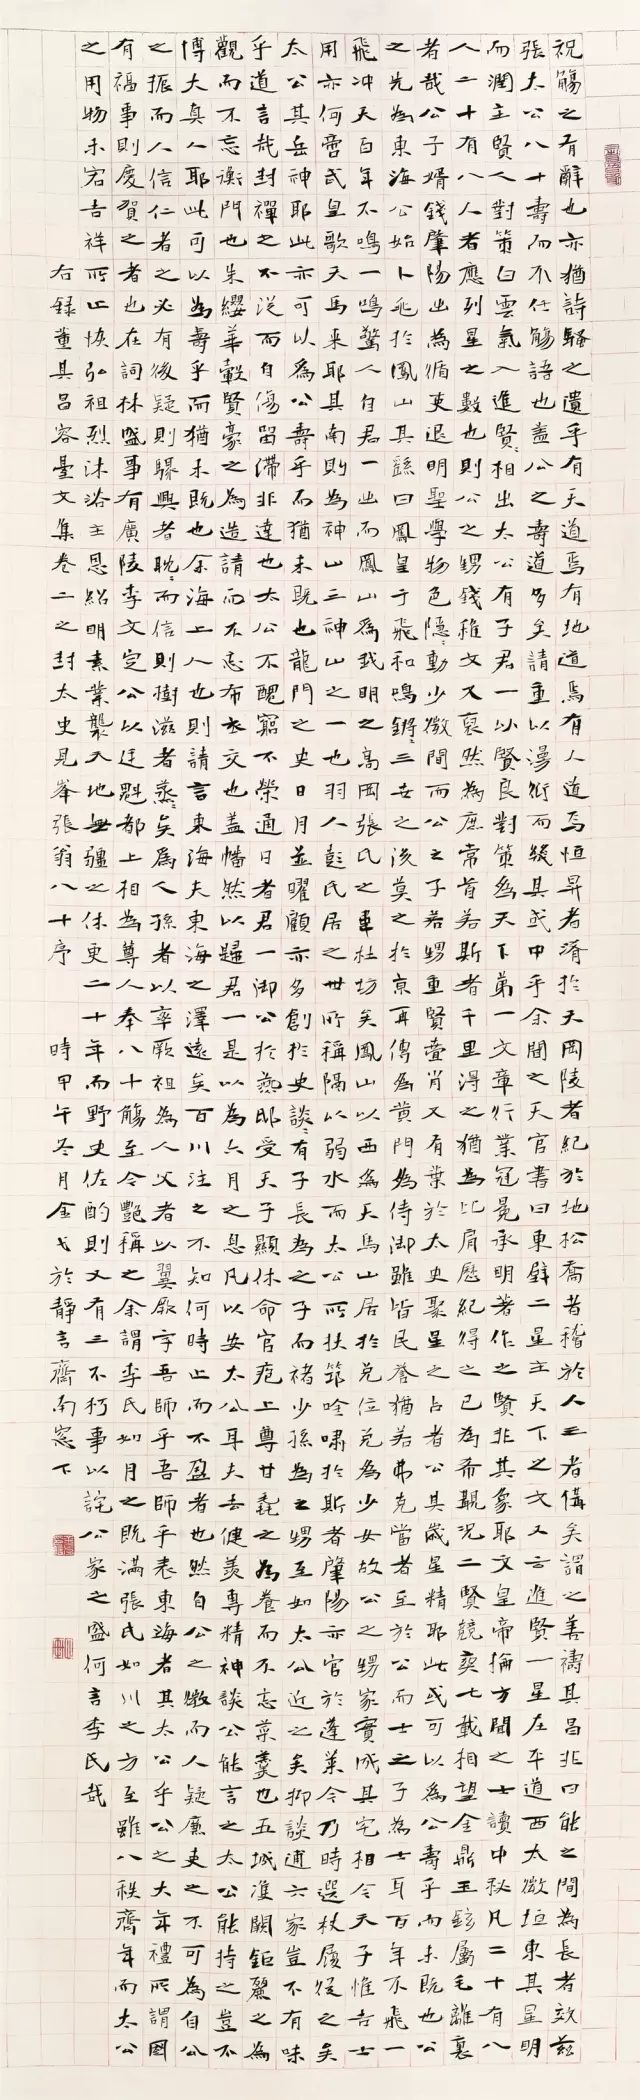 祝觴之有辭也亦猶詩騷之遺乎有天道焉有地道焉有人道焉恒昇者濟於天岡陵者紀於地松喬者稽於人三者備矣謂之善禱其昌非曰能之間為長者效茲
張太公八十壽而不任觴語也蓋公之壽道多矣請重以漫衍而緩其或中乎余聞之天官書曰東壁二星主天下之文又云進賢一星在平道西太微垣東其星明
而潤主賢人對策白雲氣入進賢賢相出太公有子君一以賢良對策為天下第一文章行業冠冕承明著作之賢非其象耶文皇帝掄方聞之士讀中秋凡二十有八
人二十有八人者應列星之數也則公之甥錢稚文又裒然為庶常首若斯者千里得之猶為比肩歷紀得之已為希覯況二賢競爽七載相望金鼎玉鉉屬毛離裏
者哉公子婿錢肇陽出為循吏退明聖學物色隱隱動少微間而公之子若甥重賢疊肖又有葉於太史聚星之占者公其歲星精耶此或可以為公壽乎而未既也公
之先為東海公始卜兆於鳳山其繇曰鳳皇于飛和鳴鏘鏘三世之後莫之於京再傳為黃門為侍御雖皆民譽猶若弗克當者至於公而士之子為士耳百年不飛一
飛冲天百年不鳴一鳴驚人自君一出而鳳山為我明之高岡張氏之車杜坊矣鳳山以西為天馬山居於兌位兌為少女故公之甥家實成其宅相今天子惟吉士
用亦何啻武皇歌天馬来耶其南則為神山三神山之一也羽人彭氏居之世所稱隔以弱水而太公所扶筇唫嘯於斯者肇陽亦官於蓬萊今乃時選杖履從之矣
太公其岳神耶此亦可以為公壽乎而猶未既也龍門之史日月並曜顧亦多創於史談談有子長為之子而褚少孫為之甥至如太公近之矣抑談逋六家豈不有味
乎道言哉封禪之不從而自傷留滯非達也太公不醜窮不榮通日者君一御公於燕邸受天子顯休命官庖上尊甘毳之為養而不忘菜羹也五城准闕鉅麗之為
觀而不忘衡門也朱纓華轂賢豪之為造請而不忘布衣交也蓋幡然以歸君一是以為六月之息凡以安太公耳夫去健羨專精神談公能言之太公能持之豈不
博大真人耶此可以為壽乎而猶未既也余海上人也則請言東海夫東海之澤遠矣百川注之不知何時止而不盈者也然自公之燉而人疑廉吏之不可為自公
之振而人信仁者之必有後疑則驛興者耽耽而信則樹滋者蒸蒸矣為人孫者以率厥祖為人父者以翼厥字吾師乎吾師乎表東海者其太公乎公之大年禮所謂國
有福事則慶賀之者也在詞林盛事有廣陵李文定公以廷魁都上相為尊人奉八十觴至今艷稱之余謂李氏如月之既滿張氏如川之方至雖八秩齊年而太公
之用物未宏吉祥所止恢弘祖烈沐浴主恩紹明素業襲天地無疆之休更二十年而野史佐酌則又有三不朽事以詫公家之盛何言李氏哉
右録董其昌容臺文集卷二之封太史見峯張翁八十序 時甲午冬月金弋於靜言齋南窓下